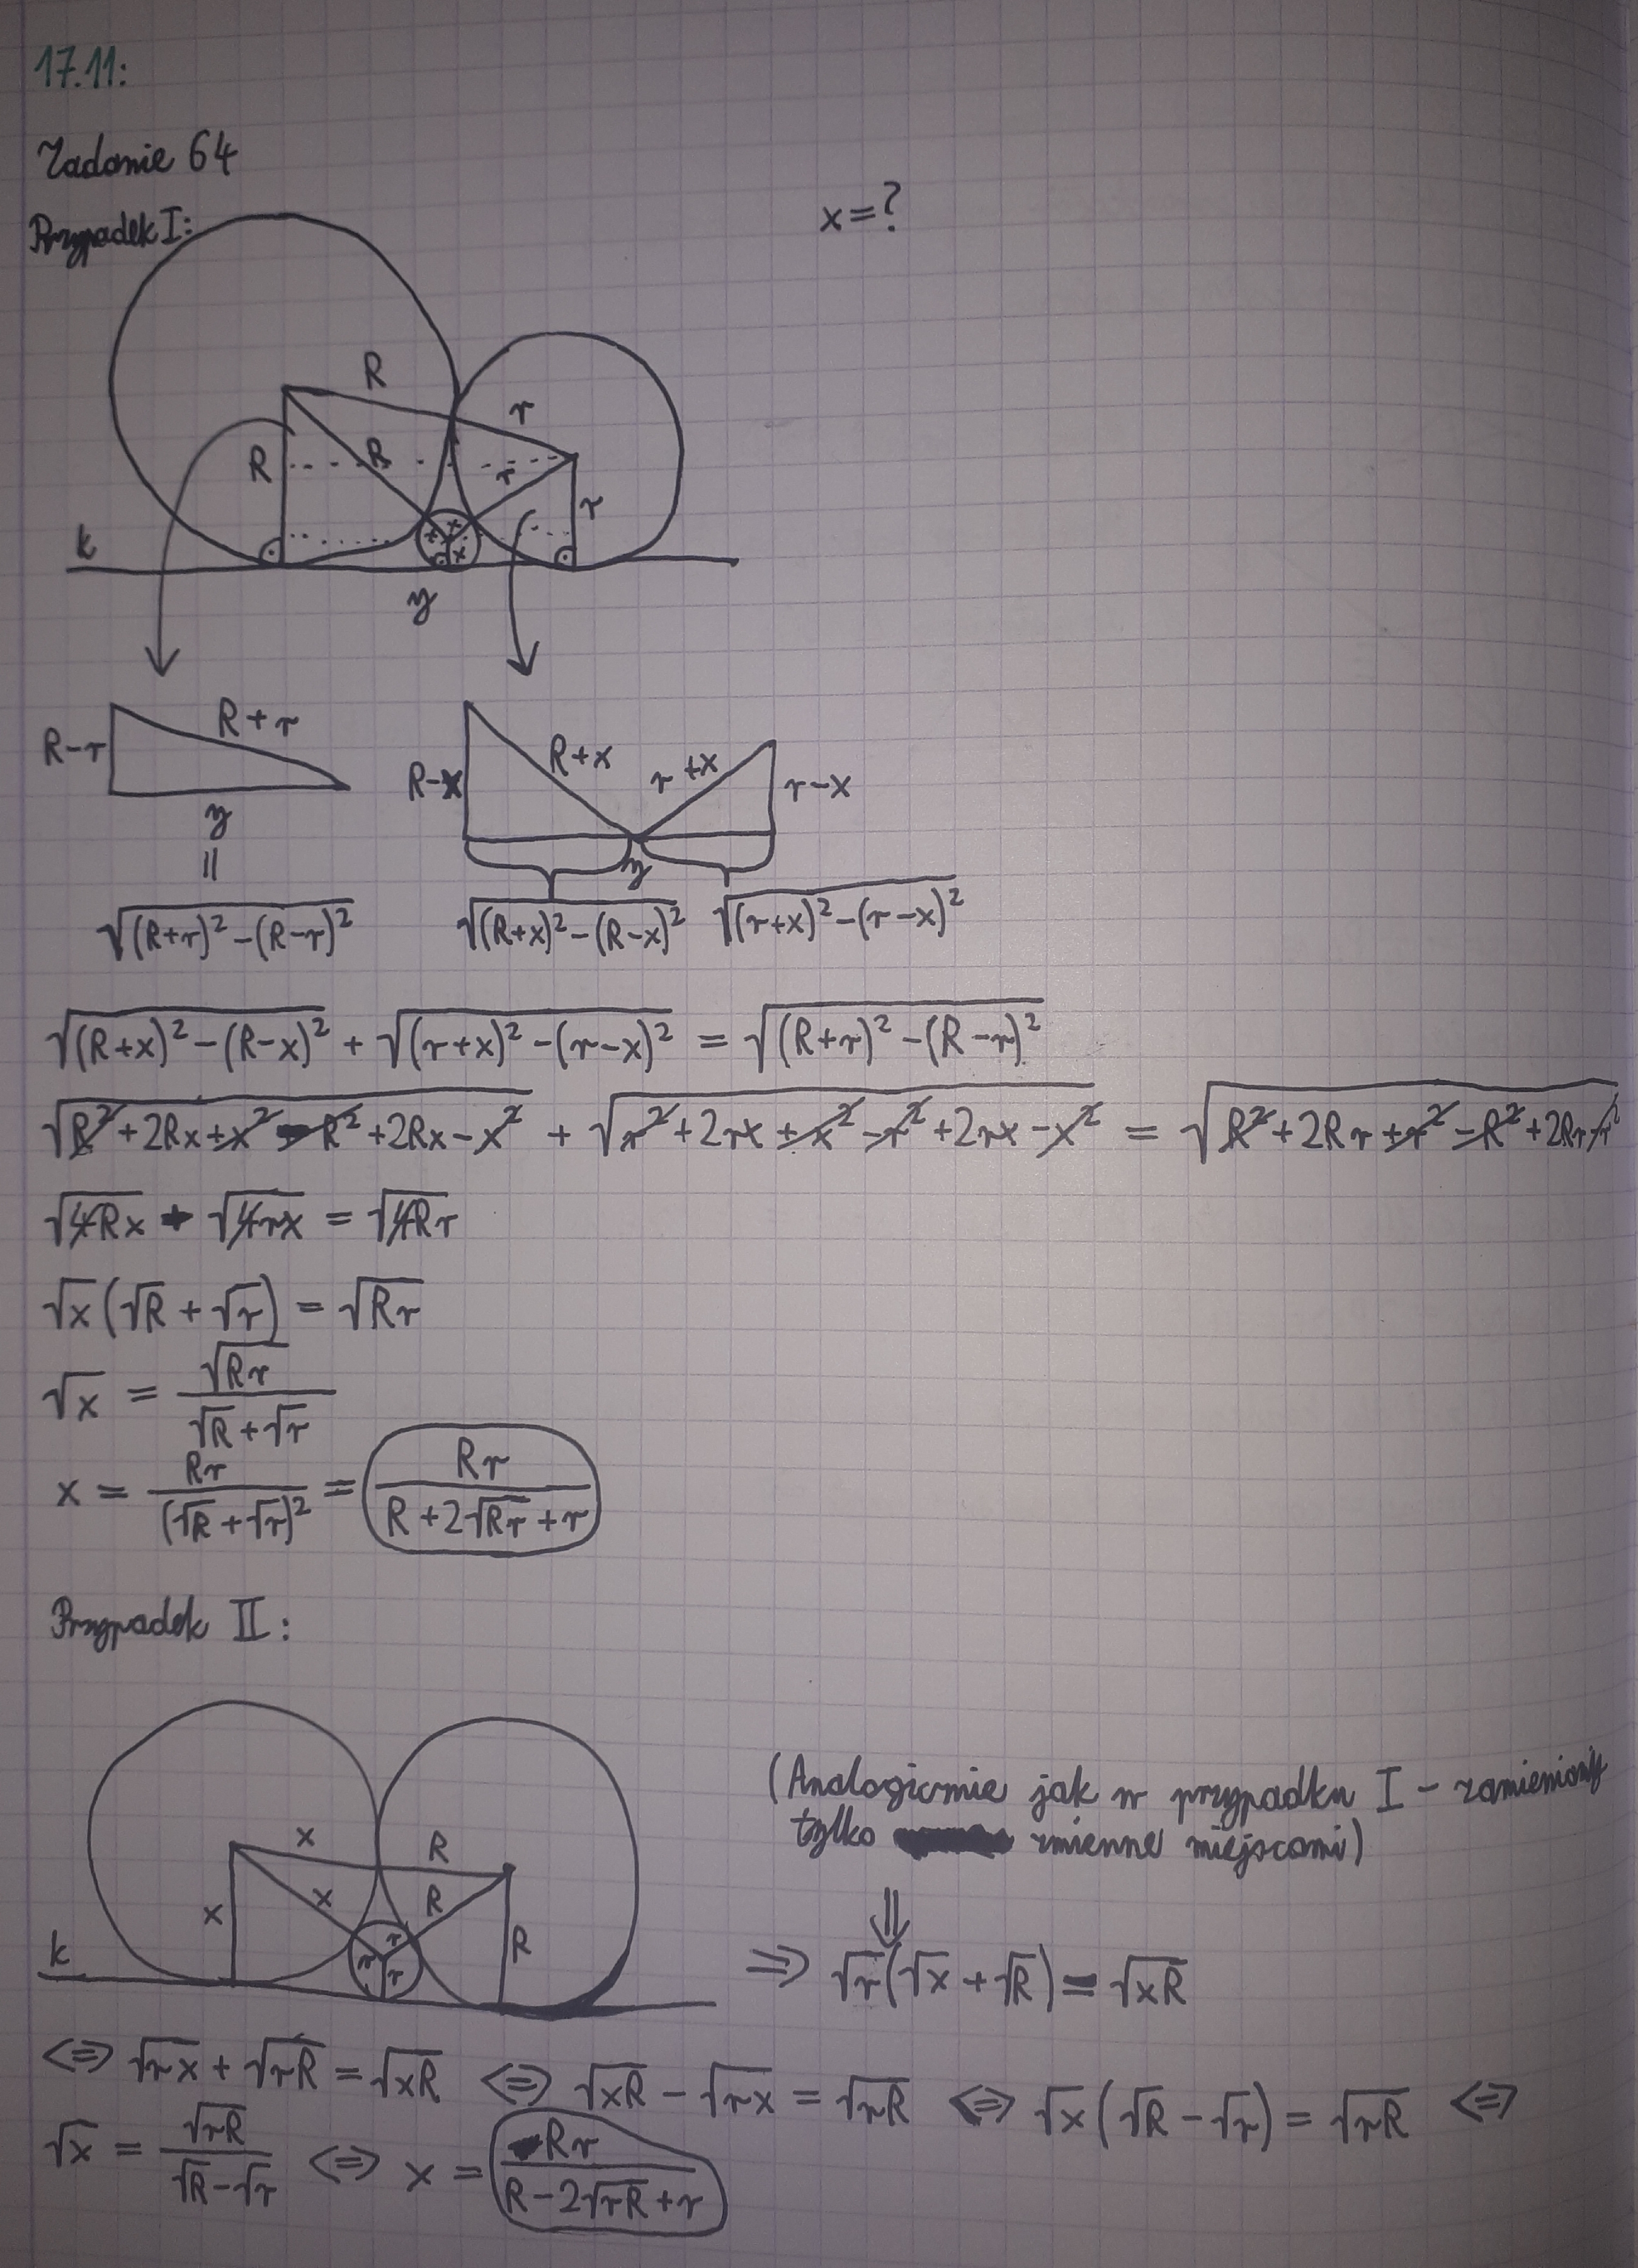 17.11:
Zadanie 64
Przypadek I:
x=?
R
r
R
R
r
r
x
x
x
k
y
R+r
R-r
y
=
√((R+r)²-(R-r)²)
R+x
r+x
R-x
r-x
y
√((R+x)²-(R-x)²) √((r+x)²-(r-x)²)
√((R+x)²-(R-x)²) + √((r+x)²-(r-x)²) = √((R+r)²-(R-r)²)
√(R²+2Rx+x²-R²+2Rx-x²) + √(r²+2rx+x²-r²+2rx-x²) = √(R²+2Rr+r²-R²+2Rr-r²)
√(4Rx) + √(4rx) = √(4Rr)
√x(√R + √r) = √(Rr)
√x = √(Rr)/(√R+√r)
x = Rr/(√R+√r)² = Rr/(R+2√(Rr)+r)
Przypadek II:
x
R
x
R
x
R
r
r
r
k
(Analogicznie jak w przypadku I - zamieniamy
tylko zmienne miejscami)
⇓
⇒ √r(√x+√R) = √(xR)
⇔ √(rx)+√(rR) = √(xR) ⇔ √(xR) - √(rx) = √(rR) ⇔ √x(√R-√r) = √(rR) ⇔
√x = √(rR)/(√R-√r) ⇔ x = Rr/(R-2√(rR)+r)